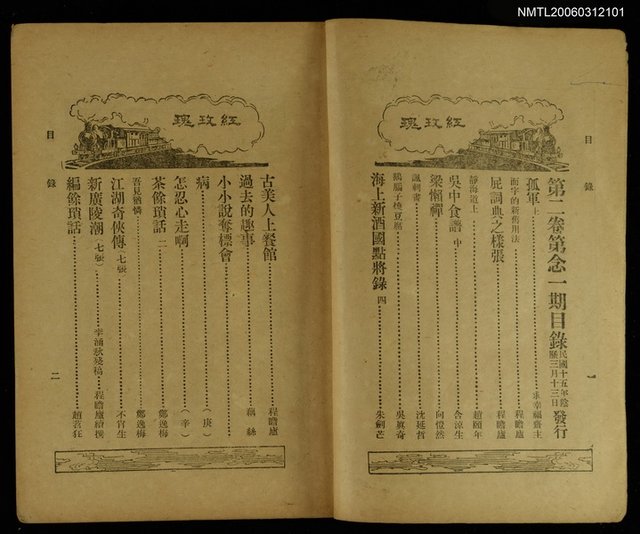 NMTL20060312101
目錄
紅玫瑰
第二卷第念一期目錄 民國十五年陰歷三月十三日發行
孤軍 上 求幸福齋主
面字的新舊用法 程瞻廬
屁詞典之樣張 程瞻廬
靜海道上 趙頤年
吳中食譜 中 含涼生
梁懶禪 向愷然
諷刺書 沈延哲
鵝腦子燒豆腐 吳真奇
海上新酒國點將錄 四 朱劍芒
一
紅玫瑰
目錄
古美人上餐館 程瞻廬
過去的趣事 藕絲
小小說奪標會
病 (庚)
怎忍心走啊 (辛)
茶餘瑣話 二 鄭逸梅
吾見猶憐 鄭逸梅
江湖奇俠傳 (七張) 不肖生
新廣陵潮 (七張) 李涵秋殘稿 程瞻廬續撰
編餘瑣話 趙苕狂
二